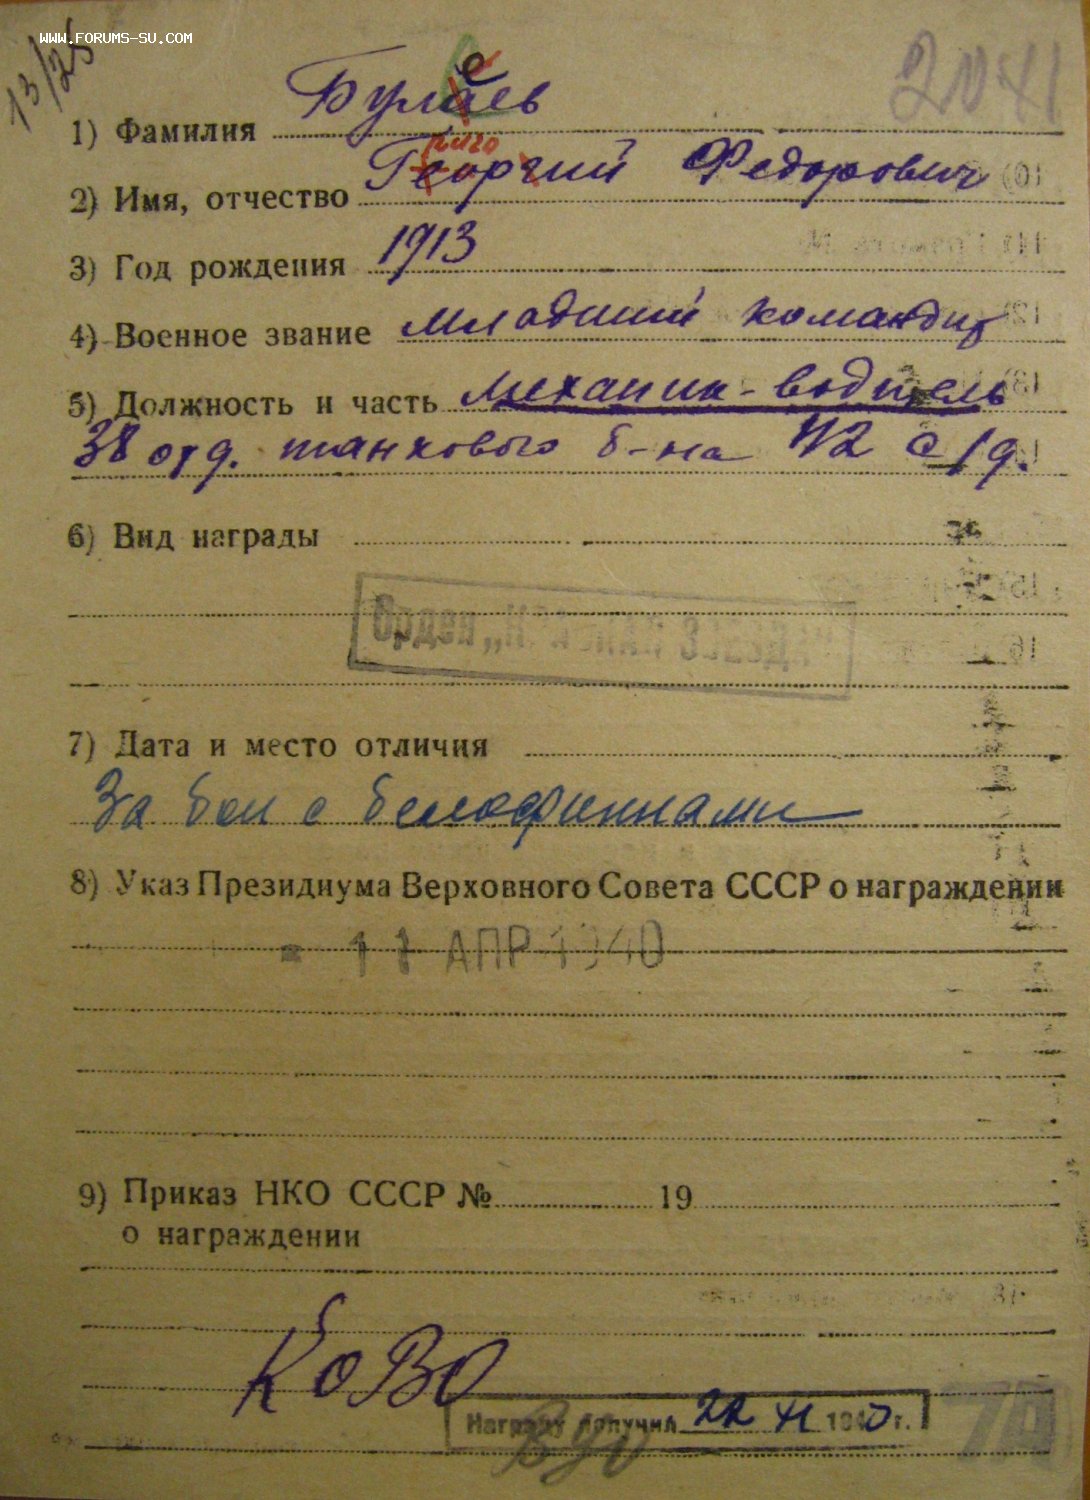 WWW.FORUMS-SU.COM
13/25
2041
1) Фамилия Булаев
е
риго
2) Имя, отчество Георгий Федорович
3) Год рождения 1913
4) Военное звание Младший командир
5) Должность и часть механик-водитель
38 отд. танкового б-на 72 с/д.
6) Вид награды
Орден „
7) Дата и место отличия
За бои с белофиннами
8) Указ Президиума Верховного Совета СССР о награждении
11 АПР 1940
9) Приказ НКО СССР № 19
о награждении
КОВО
Награду получил 22 XI 1940 г.